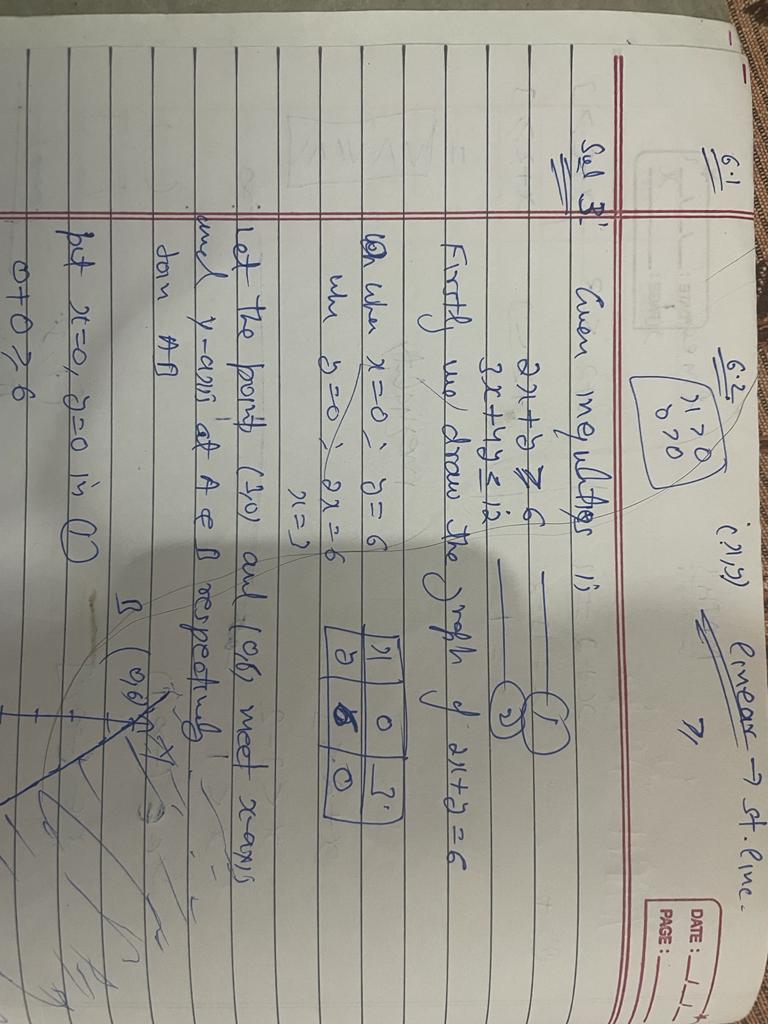 6.1 6.2 (x,y) linear → st. line.
x>0
y>0
≥
DATE: __/__/__
PAGE:
Sol 3: Given inequalities is
2x+y ≥ 6 —— ①
3x+4y ≤ 12 —— ②
Firstly we draw the graph of 2x+y=6
when x=0; y=6
when y=0; 2x=6
x=3
x 0 3
y 6 0
Let the points (3,0) and (0,6) meet x-axis
and y-axis at A & B respectively.
Join AB
put x=0, y=0 in ①
0+0 ≥ 6
B (0,6)